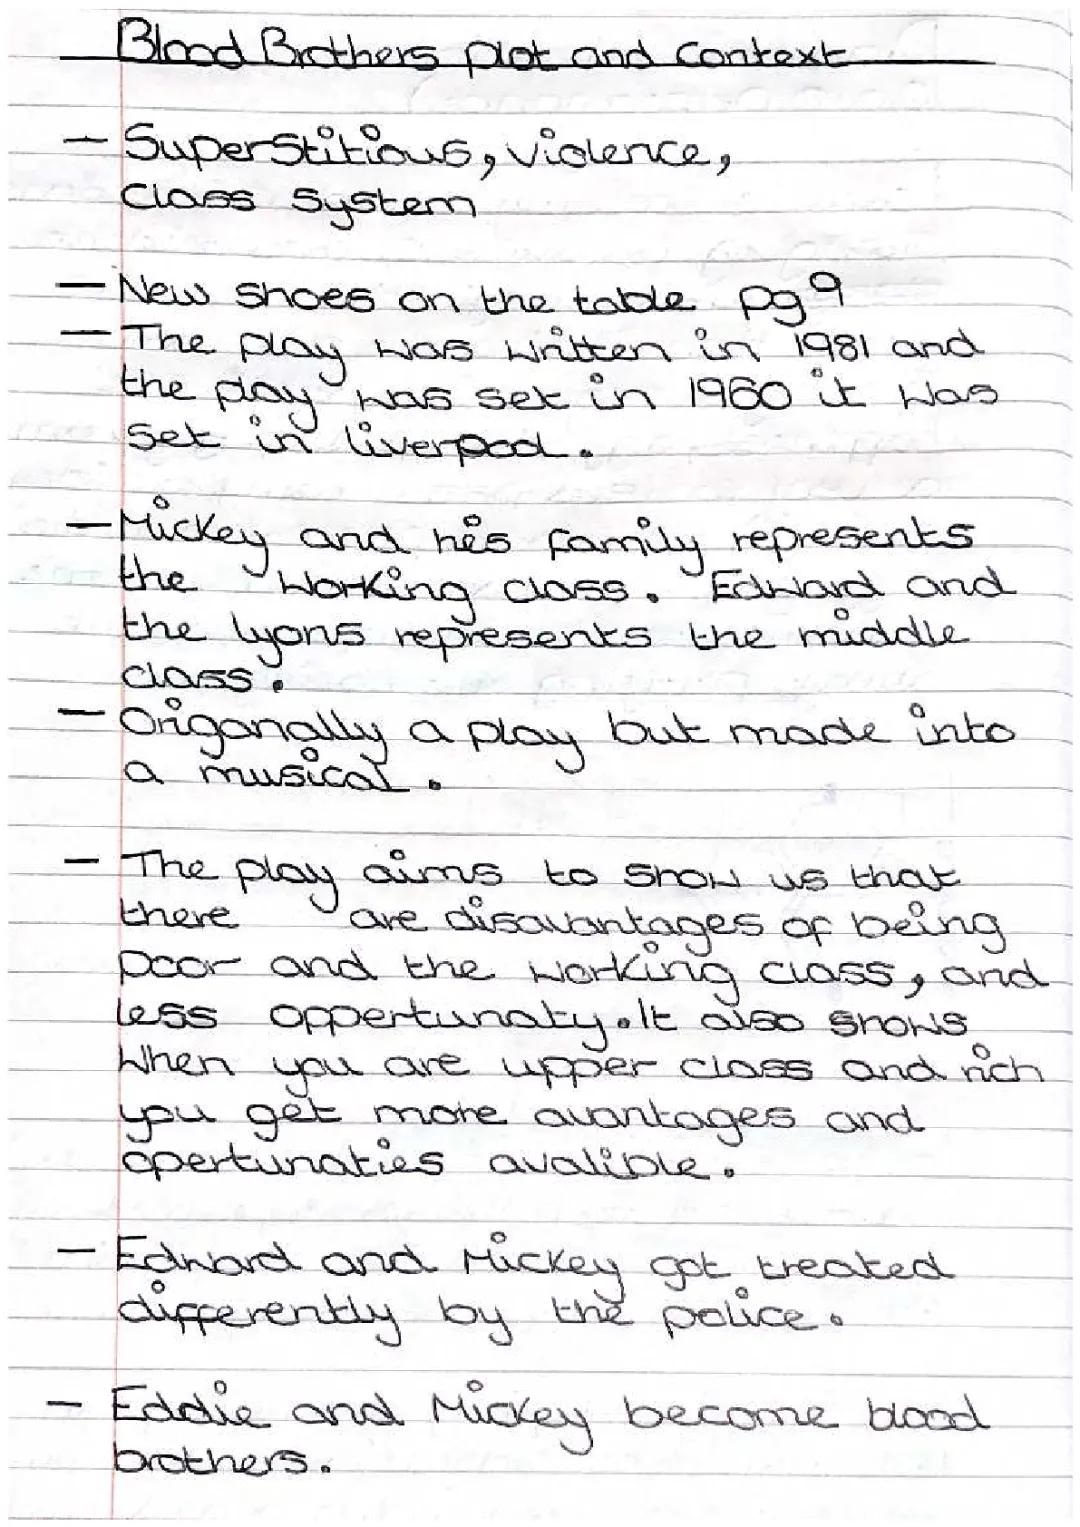 Blood Brothers plot and context
- Superstitious, violence,
class system
- New shoes on the table pg9
- The play was written in 1981 and
the play was set in 1960 it was
set in liverpool.
- Mickey and his family represents
the working class. Edward and
the lyons represents the middle
class.
- Origonally a play but made into
a musical.
- The play aims to show us that
there are disavantages of being
poor and the working class, and
less oppertunaty. It also shows
when you are upper class and rich
you get more avantages and
opertunaties avalible.
- Edward and Mickey got treated
differently by the police.
- Eddie and Mickey become blood
brothers.